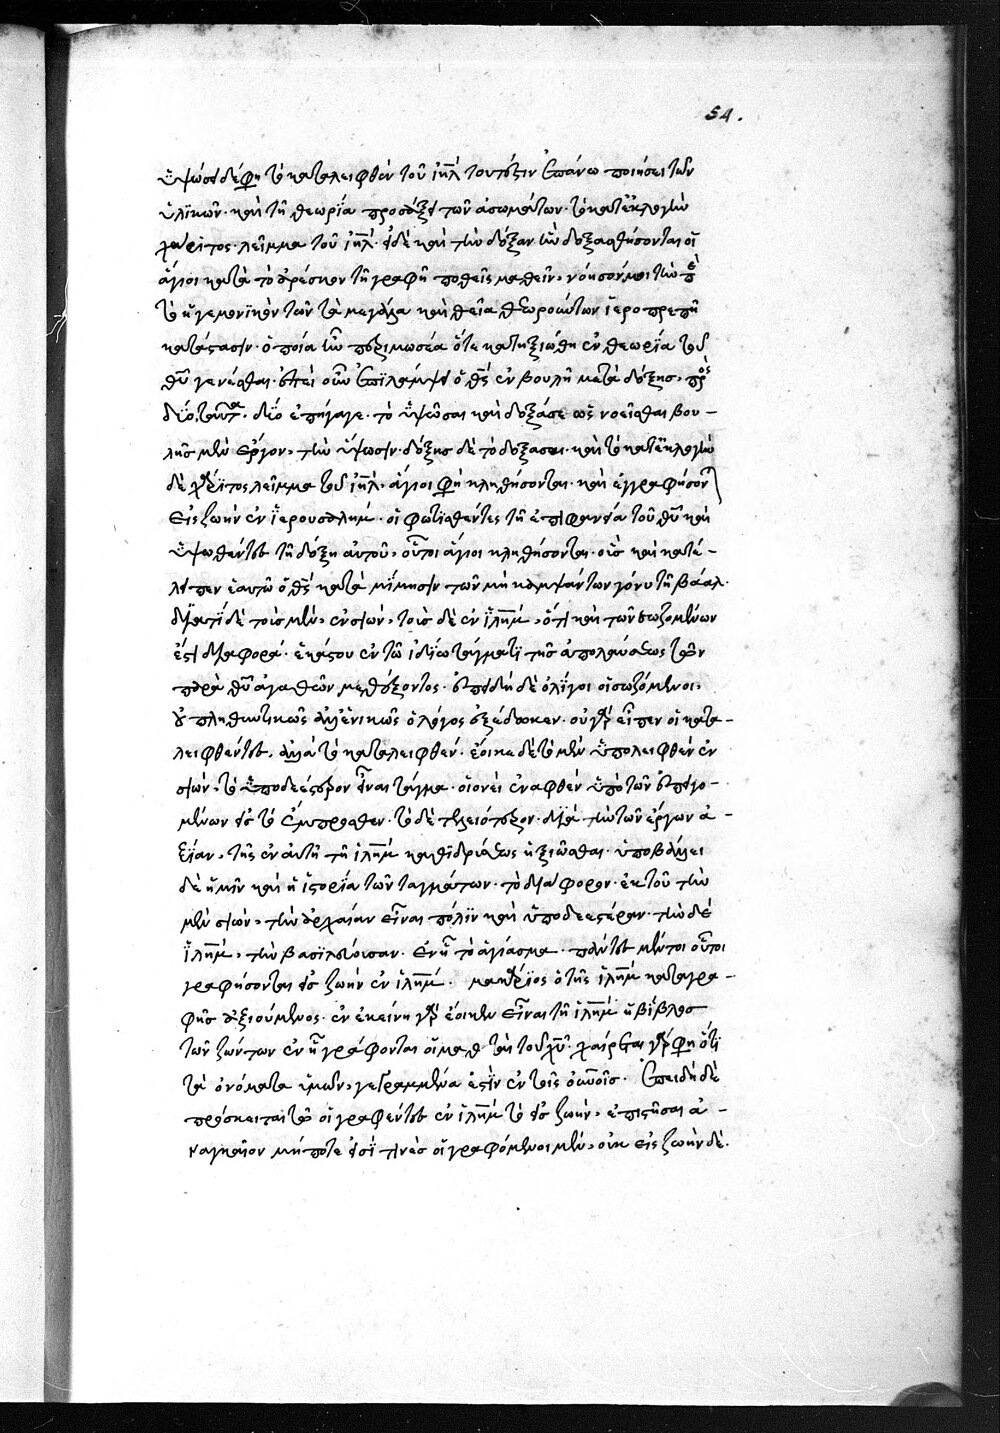 54.
ὑψώσει δέ φη τὸ καταλειφθὲν τοῦ ιηλ τουτέστιν ἐπάνω ποιήσει τῶν
ὑλικῶν· καὶ τῇ θεωρία προσάξει τῶν ἀσωμάτων· τὸ κατεκλογὴν
χάριτος λεῖμμα τοῦ ιηλ· εἰ δὲ καὶ τὴν δόξαν ἣν δοξασθήσονται οἱ
ἅγιοι κατὰ τὸ ἀρέσκον τῇ γραφῇ ποθεῖς μαθεῖν, νόησόν μοι
τὸ ἡγεμονικὸν τῶν τὰ μεγάλα καὶ θεῖα θεωρούντων ἱεροπρεπῆ
κατάστασιν· ὁποία ἦν περὶ μωσέα ὅτε κατηξιώθη ἐν θεωρία τοῦ
θυ γενέσθαι· ἐπεὶ οὖν ἐπιλάμψει ὁ θς ἐν βουλῇ μετὰ δόξης, πρὸς
δύο ταῦτα· δύο ἐπήγαγε· τὸ ὑψῶσαι καὶ δοξάσαι ὡς νοεῖσθαι βου-
λῆς μὲν ἔργον, τὴν ὕψωσιν· δόξης δὲ τὸ δοξάσαι· καὶ τὸ κατεκλογὴν
δὲ χάριτος λεῖμμα τοῦ ιηλ· ἅγιοι φη κληθήσονται· καὶ ἐγγραφήσονται
εἰς ζωὴν ἐν ἱερουσαλημ· οἱ φωτισθέντες τῇ ἐπιφανεία τοῦ θυ καὶ
ὑψωθέντες τῇ δόξη αὐτοῦ, οὗτοι ἅγιοι κληθήσονται· οὓς καὶ κατέ-
λιπεν ἑαυτῶ ὁ θς κατὰ μίμησιν τῶν μὴ καμψάντων γόνυ τῇ βάαλ·
διατί δὲ τοὺς μὲν, ἐν σιών, τοὺς δὲ ἐν ιλημ, ὅτι καὶ τῶν σωζομένων
ἐστὶ διαφορά· ἑκάστου ἐν τῶ ἰδίω τάγματι τῆς ἀπολαύσεως τῶν
παρὰ θυ ἀγαθῶν μεθέξοντος· ἐπειδὴ δὲ ὀλίγοι οἱ σωζόμενοι,
οὐ πληθυντικῶς ἀλλ' ἑνικῶς ὁ λόγος ἐξέδωκεν· οὐ γὰρ εἶπεν οἱ κατα-
λειφθέντες, ἀλλὰ τὸ καταλειφθέν· ἔοικε δὲ τὸ μὲν ὑπολειφθὲν ἐν
σιών, τὸ ὑποδεέστερον εἶναι τάγμα· οἱονεὶ ἐναφθὲν ὑπὸ τῶν ἐπειγο-
μένων εἰς τὸ ἔμπροσθεν· τὸ δὲ τελειότερον, διὰ τὴν τῶν ἔργων ἀ-
ξίαν, τῆς ἐν αὐτῇ τῇ ιλημ καθιδρύσεως ἠξιῶσθαι· ὑποβάλλει
δὲ ἡμῖν καὶ ἡ ἱστορία τῶν ταγμάτων· τὸ διάφορον· ἐκ τοῦ τὴν
μὲν σιών, τὴν ἀρχαίαν εἶναι πόλιν καὶ ὑποδεεστέραν· τὴν δὲ
ιλημ, τὴν βασιλεύουσαν· ἐν ᾗ τὸ ἁγίασμα· πάντες μέντοι οὗτοι
γραφήσονται εἰς ζωὴν ἐν ιλημ· μακάριος ὁ τῆς ιλημ καταγρα-
φῆς ἀξιούμενος· ἐν ἐκείνη γὰρ ἔοικεν εἶναι τῇ ιλημ ἡ βίβλος
τῶν ζώντων ἐν ᾗ γράφονται οἱ μαθηταὶ τοῦ χυ· χαίρετε γάρ φη ὅτι
τὰ ὀνόματα ὑμῶν, γεγραμμένα ἐστὶν ἐν τοῖς οὐνοῖς· ἐπειδὴ δὲ
πρόσκειται τὸ οἱ γραφέντες ἐν ιλημ τὸ εἰς ζωήν, ἐπιστῆσαι ἀ-
ναγκαῖον μήποτε εἰσί τινες οἱ γραφόμενοι μὲν, οὐκ εἰς ζωὴν δέ·